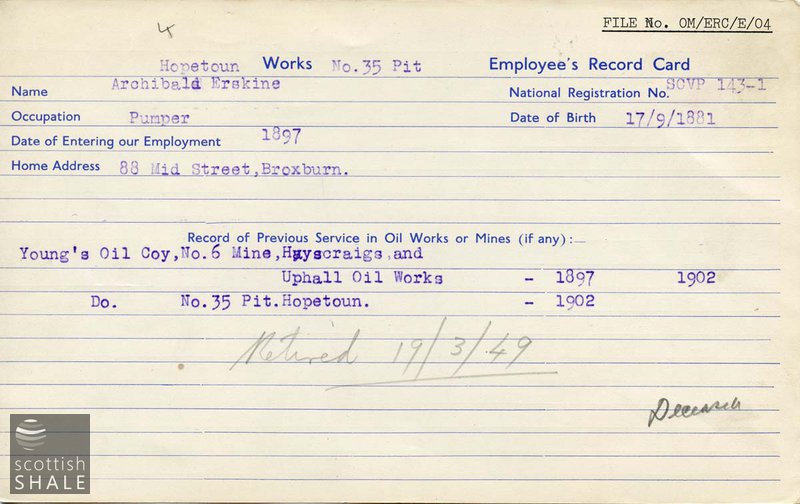 FILE No. OM/ERC/E/04
4
Hopetoun Works No.35 Pit Employee's Record Card
Name Archibald Erskine National Registration No. SCVP 143-1
Occupation Pumper Date of Birth 17/9/1881
Date of Entering our Employment 1897
Home Address 88 Mid Street,Broxburn.
Record of Previous Service in Oil Works or Mines (if any):—
Young's Oil Coy,No.6 Mine,Hayscraigs,and
Uphall Oil Works - 1897 1902
Do. No.35 Pit.Hopetoun. - 1902
Retired 19/3/49
scottish
SHALE